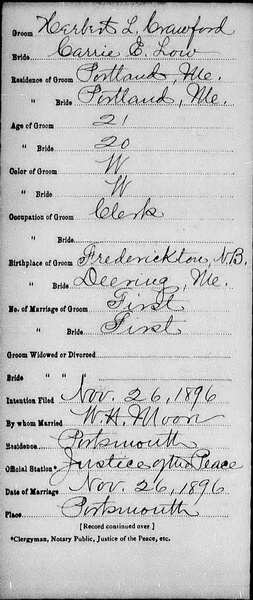 Groom Herbert L. Crawford
Bride Carrie E. Low
Residence of Groom Portland, Me.
" Bride Portland, Me.
Age of Groom 21
" Bride 20
Color of Groom W
" Bride W
Occupation of Groom Clerk
" Bride
Birthplace of Groom Frederickton, N.B.
" Bride Deering, Me.
No. of Marriage of Groom First
" Bride First
Groom Widowed or Divorced
Bride " " "
Intention Filed Nov. 26, 1896
By whom Married W. H. Moon
Residence Portsmouth
Official Station* Justice of the Peace
Date of Marriage Nov. 26, 1896
Place Portsmouth
[Record continued over]
*Clergyman, Notary Public, Justice of the Peace, etc.